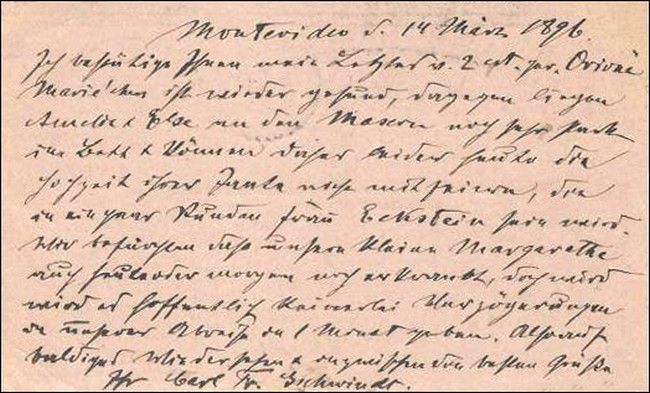 Montevideo d. 14 März 1896.
Ich bestätige Ihnen mein Letztes v. 2 ct. per. Orione
Mariechen ist wieder gesund, dagegen liegen
Amelie & Else an den Masern noch sehr stark
im Bett & können daher leider heute die
Hochzeit ihrer Tante nicht mitfeiern, die
in ein paar Stunden Frau Eckstein sein wird.
Wir befürchten daß unsere kleine Margarethe
auch heute oder morgen noch erkrankt, doch wird
wird es hoffentlich keinerlei Verzögerungen
in unserer Abreise in 1 Monat geben. Also auf
baldiges Wiedersehen & inzwischen den besten Grüße
Ihr Carl Fr.